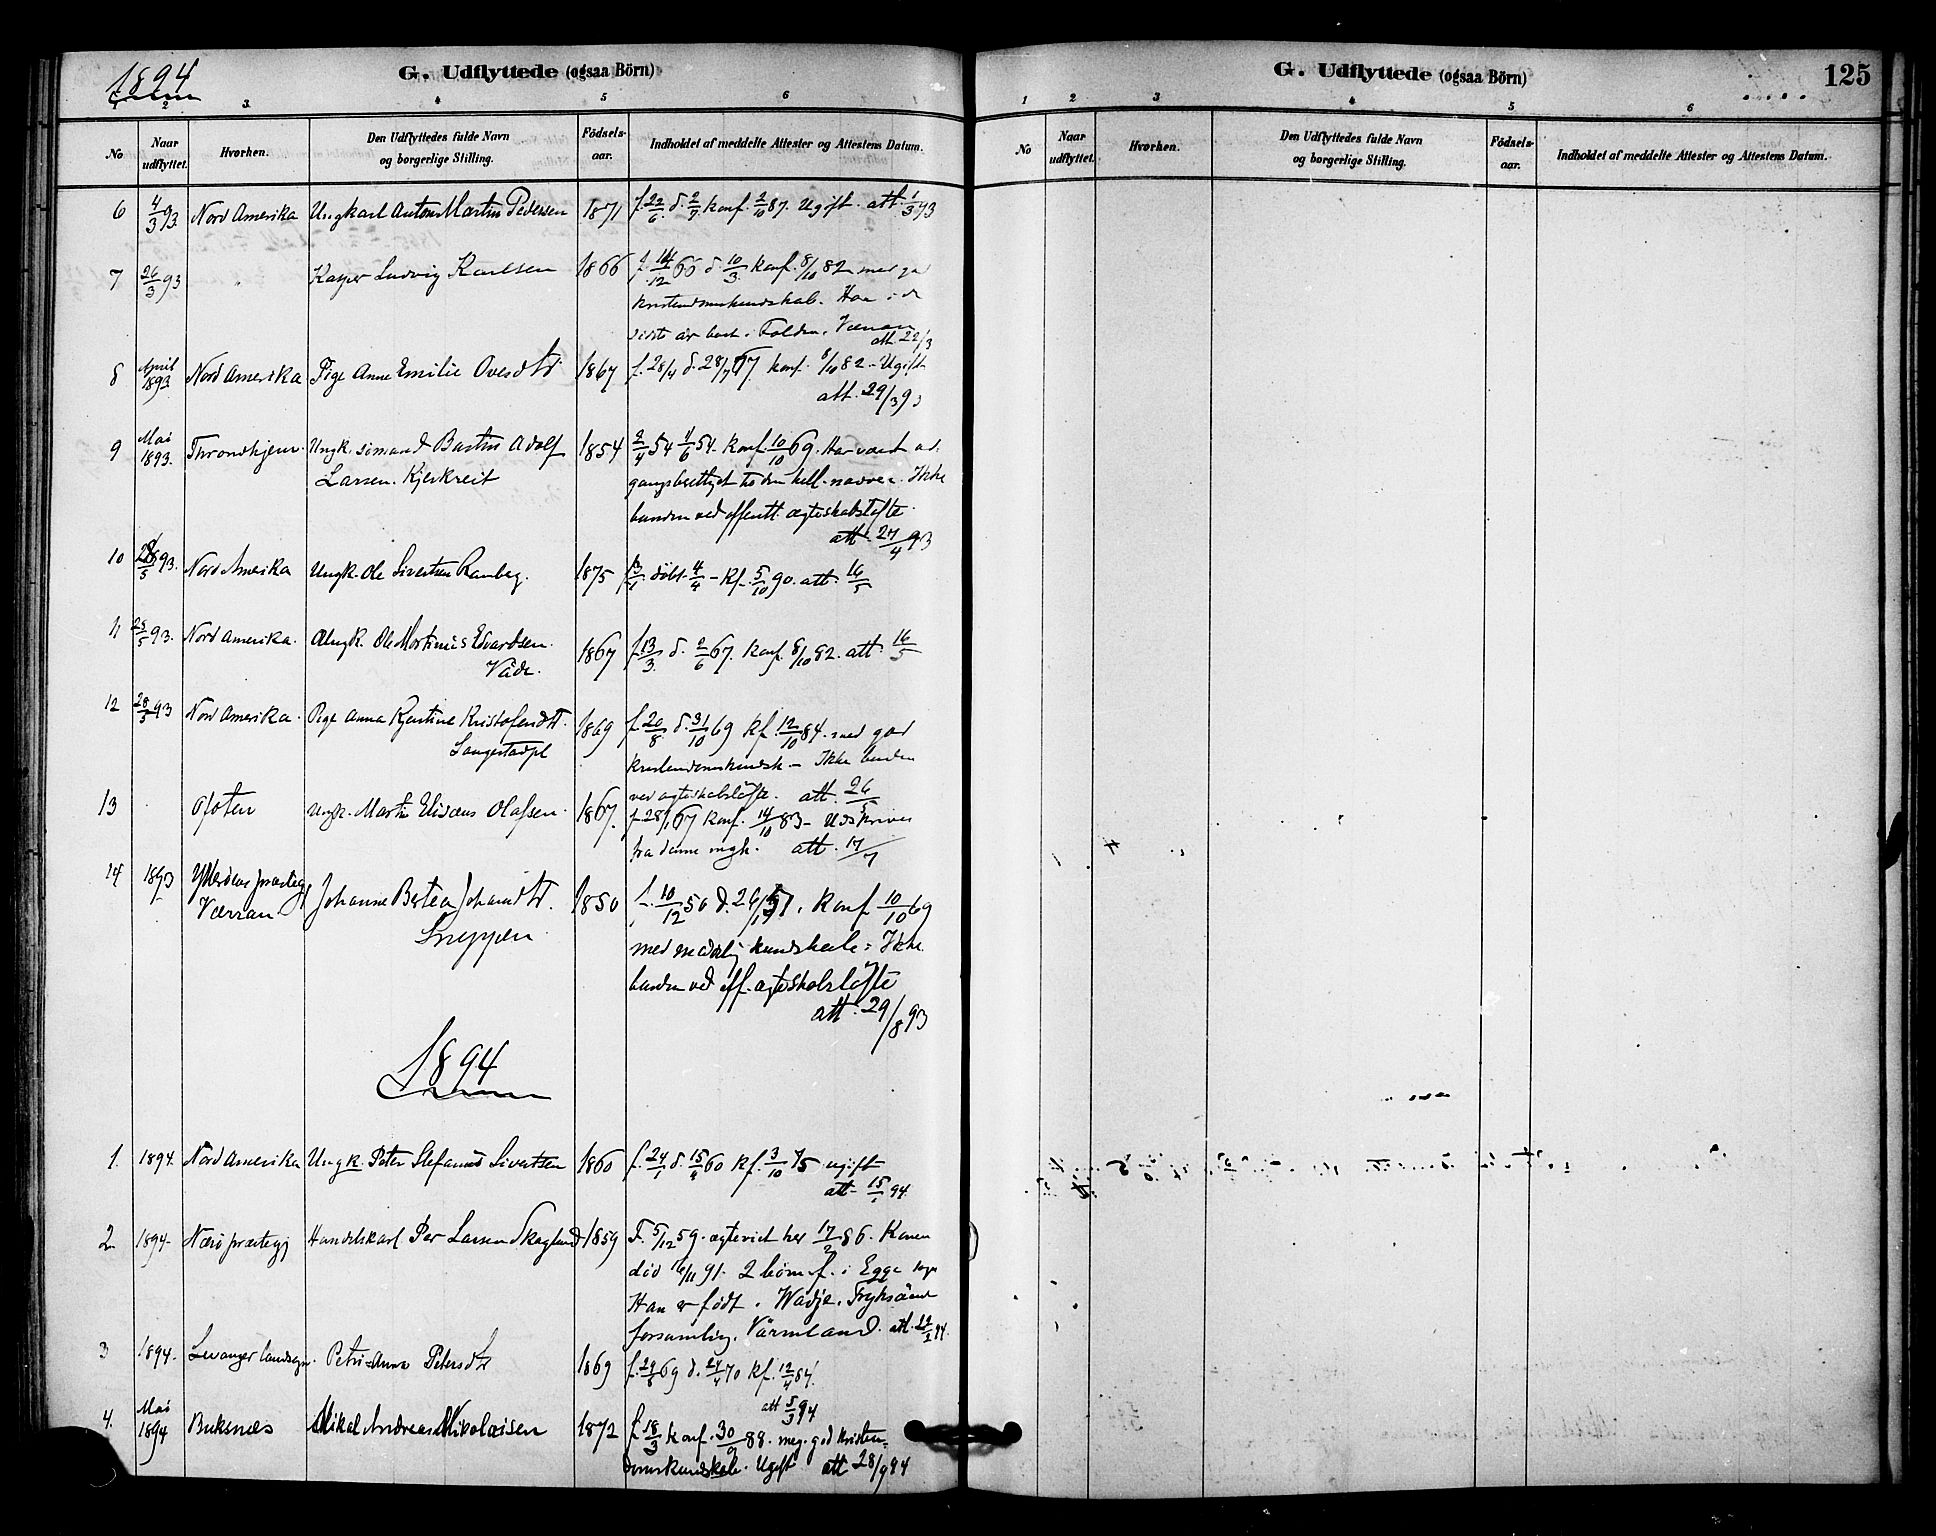 1894
G. Udflyttede (ogsaa Börn)
1 2 3. 4 5 6
No
Naar udflyttet.
Hvorhen.
Den Udflyttedes fulde Navn og borgerlige Stilling.
Födsels-aar.
Indholdet af meddelte Attester og Attestens Datum.
6 4/3 93. Nord Amerika Ungkarl Anton Martin Pedersen 1871 f. 22/6 d. 2/7 konf. 2/10 87. Ugift. att. 1/3 93
7 26/3 93 " Kasper Ludvig Karlsen 1866 f. 14/12 66 d. 10/3 konf. 8/10 82 med god
kristendomskundskab. Har i de
sidste år boet i Folden, Værran
att. 22/3
8 April 1893. Nord Amerika Pige Anne Emilie Ovesdtr 1867 f. 28/4 d. 28/7 67 konf. 8/10 82 - Ugift
att. 29/3 93
9 Mai 1893. Throndhjem. Ungk. sömand Bastin Adolf 1854 2/4 54 4/6 54. konf. 10/10 69. Har været ad-
Larsen. Kjerkreit gangsberettiget til den hell. nadver. Ikke
bunden ved offentl. ægteskabslöfte.
att. 27/4 93
10 28/5 93. Nord Amerika Ungk. Ole Sivertsen Ramberg. 1875 13/1 döbt. 4/4 - kf. 5/10 90. att. 16/5
11 28/5 93. Nord Amerika. Ungk. Ole Martinus Edvardsen. 1867 f. 13/3. d. 2/6 67. konf. 8/10 82. att. 16/5
Våde.
12 28/5 93 Nord Amerika. Pige Anna Kjerstine Kristofersdtr. 1869 f. 20/8 d. 31/10 69 kf. 12/10 84. med god
Langestadpl kristendomskundsk - Ikke bunden
ved ægteskabslöfte. att. 26/5
13 Ofoten Ungk. Martin Elisæus Olafsen. 1867. f. 28/1 67 konf. 14/10 83 - Udskrives
fra denne mgh. att. 17/7
14 1893 Ytteröens prestegj Johanne Bertea Johansdtr. 1850 f. 10/12 50 d. 26/1 51. konf 10/10 69
Værran Sneppen med mådelig kundskab. Ikke
bunden ved off. ægteskabslöfte
att. 29/8 93
1894
1. 1894. Nord Amerika Ungk. Peter Stefanus Sivertsen 1860 f. 24/1 d. 15/4 60 kf. 3/10 75 ugift
att. 15/ 94.
2 1894. Nærö prestegj Handelskarl Per Larsen Skaglund 1859 F. 5/12 59. ægteviet her 17/2 86. Konen
död 16/11 91. 2 börn f. i Egge sogn
Han er födt i Wadje, Fryksände
forsamling, Värmland. att. 22/2 94.
3 1894. Levanger landsogn. Petri-Anna Petersdtr 1869 f. 29/8 69 d. 24/4 70 kf. 12/4 84.
att 5/3 94
4. Mai 1894 Buksnæs Mikal Andreas Nikolaisen 1872 f. 18/3 konf. 30/9 88. meg. god kristen-
domskundskab. Ugift att 28/9 94
G. Udflyttede (ogsaa Börn)
125
1 2 3 4 5 6
No
Naar udflyttet.
Hvorhen.
Den Udflyttedes fulde Navn og borgerlige Stilling.
Födsels-aar.
Indholdet af meddelte Attester og Attestens Datum.